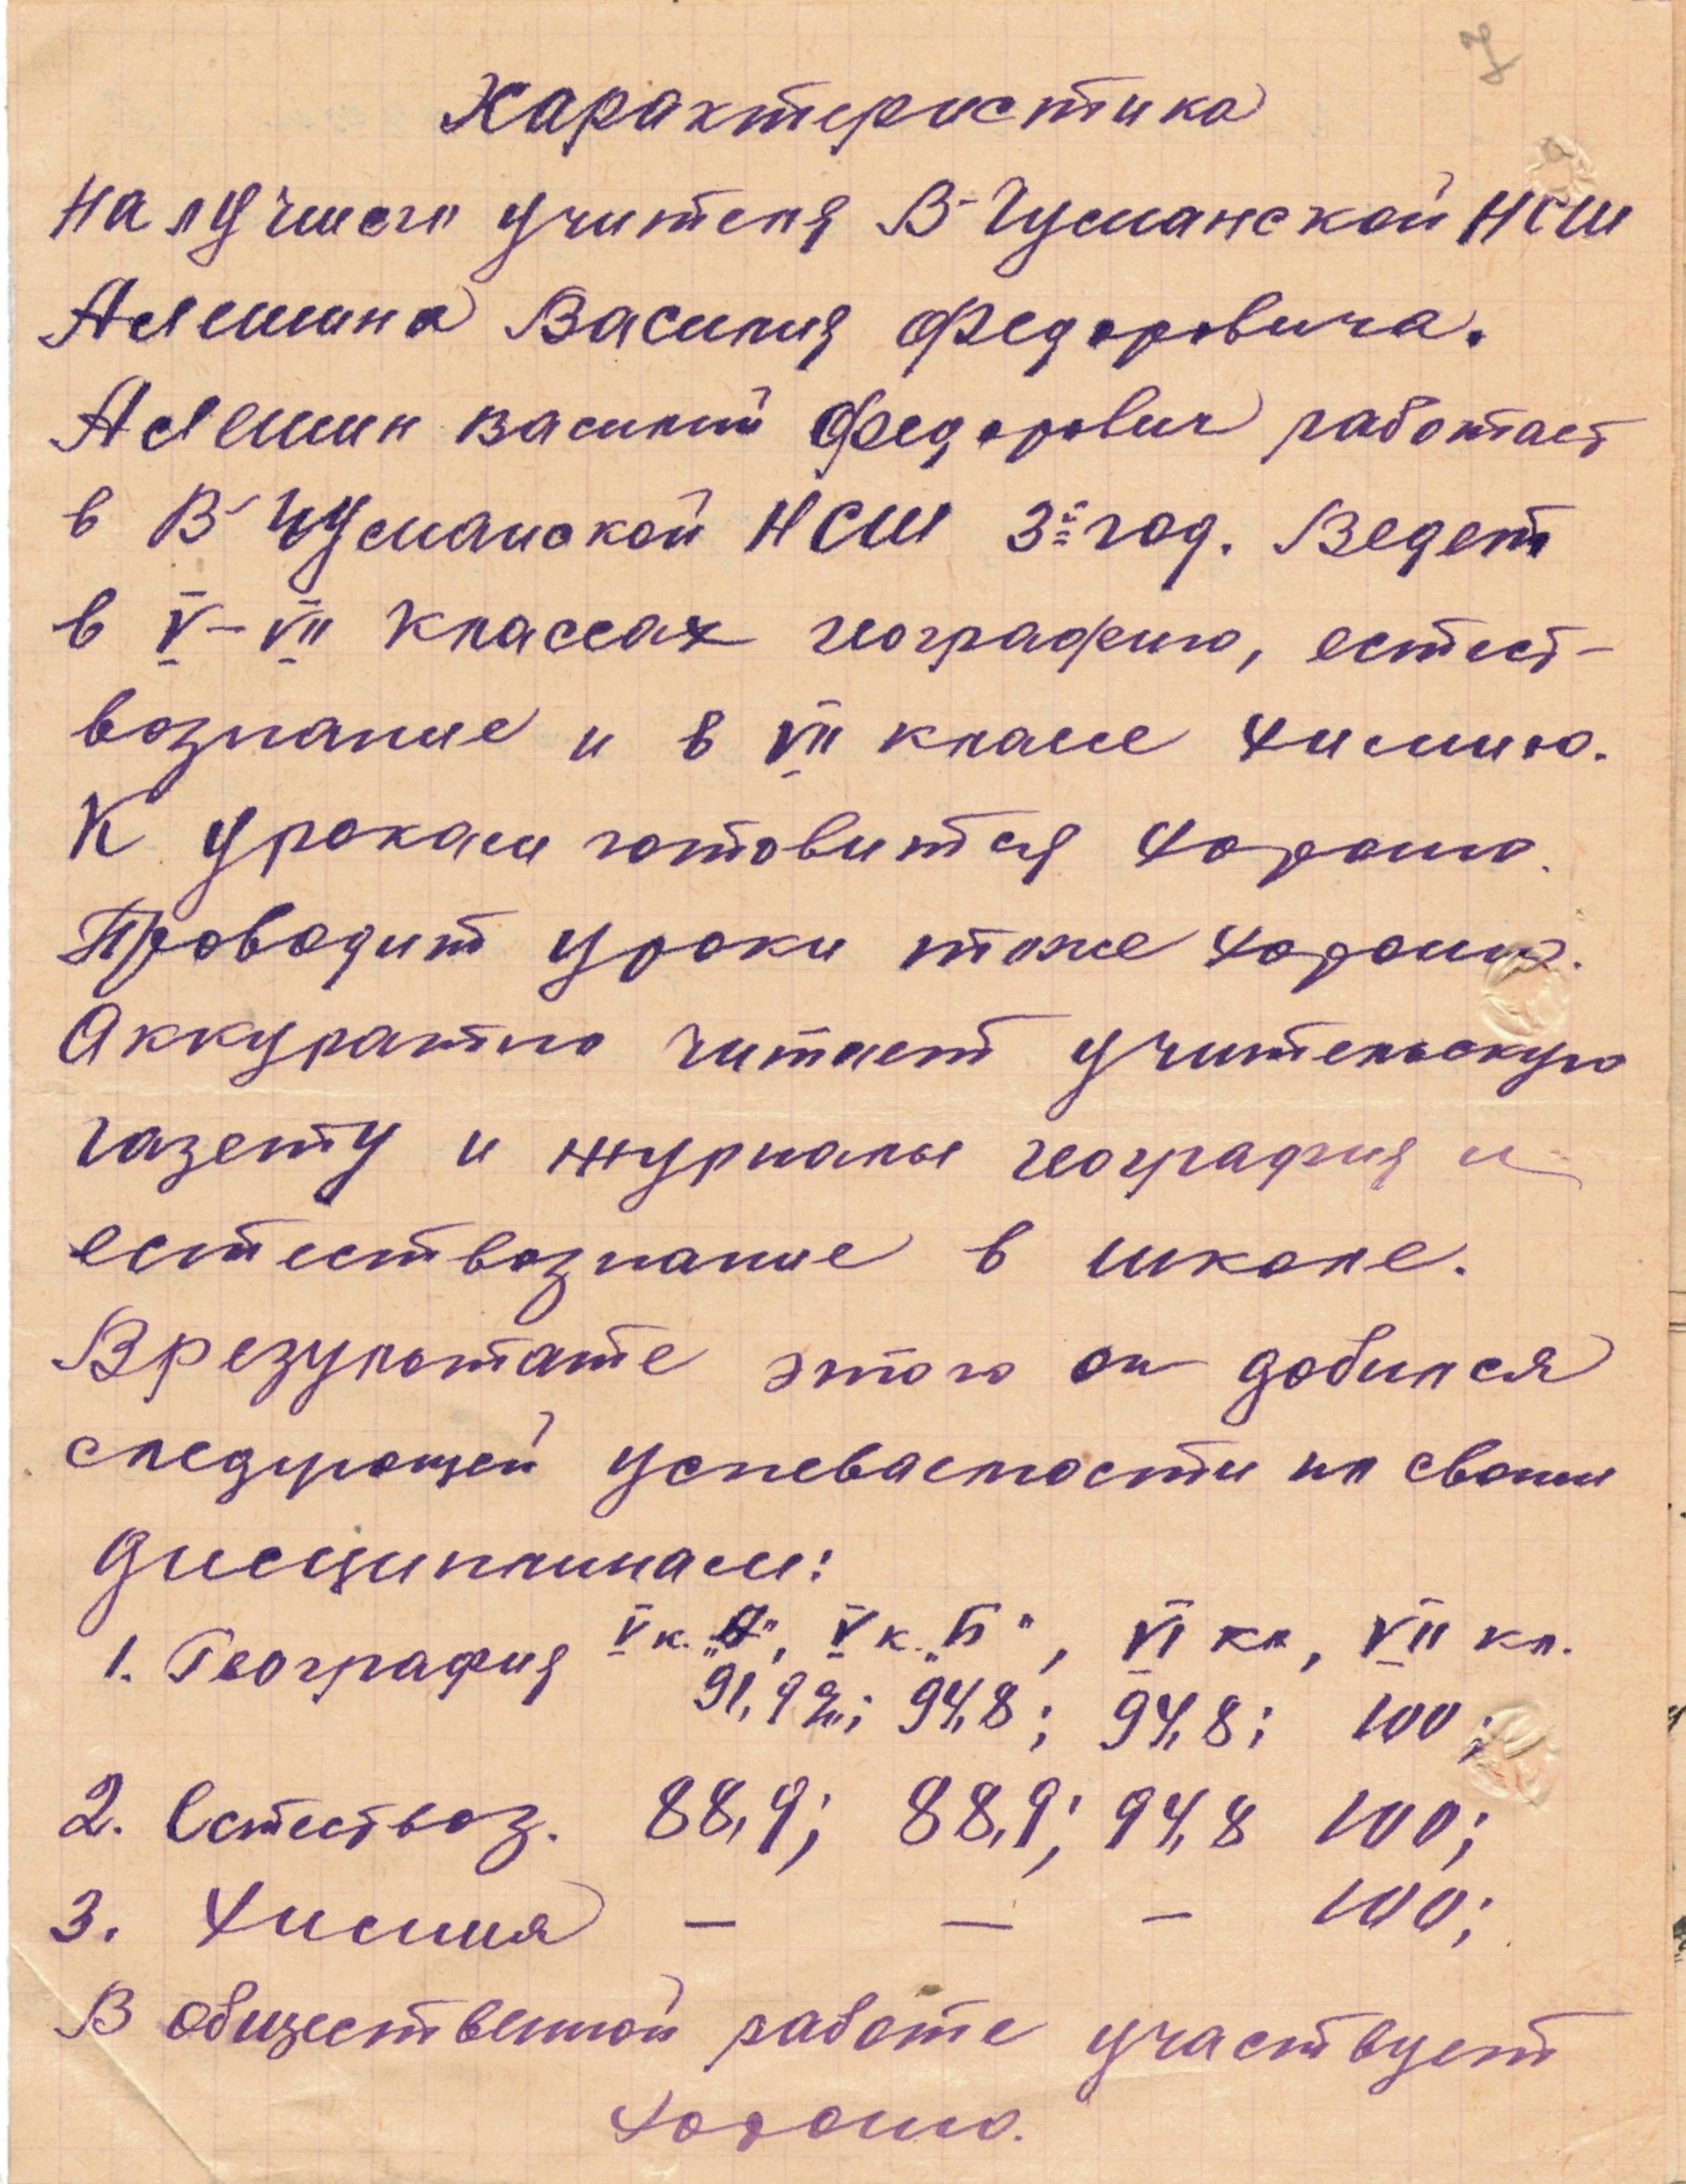 Характеристика
на лучшего учителя В-Чуманской НСШ
Алешина Василия Федоровича.
Алешин Василий Федорович работает
в В-Чуманской НСШ 3й год. Ведет
в V-VII классах географию, естест-
вознание и в VII классе химию.
К урокам готовится хорошо.
Проводит уроки тоже хорошо.
Аккуратно читает учительскую
газету и журналы география и
естествознание в школе.
В результате этого он добился
следующей успеваемости по своим
дисциплинам:
1. География V к. „А", V к. „Б", VI кл, VII кл.
91,9%; 94,8; 94,8; 100;
2. Естествоз. 88,9; 88,9; 94,8 100;
3. Химия — — — 100;
В общественной работе участвует
хорошо.